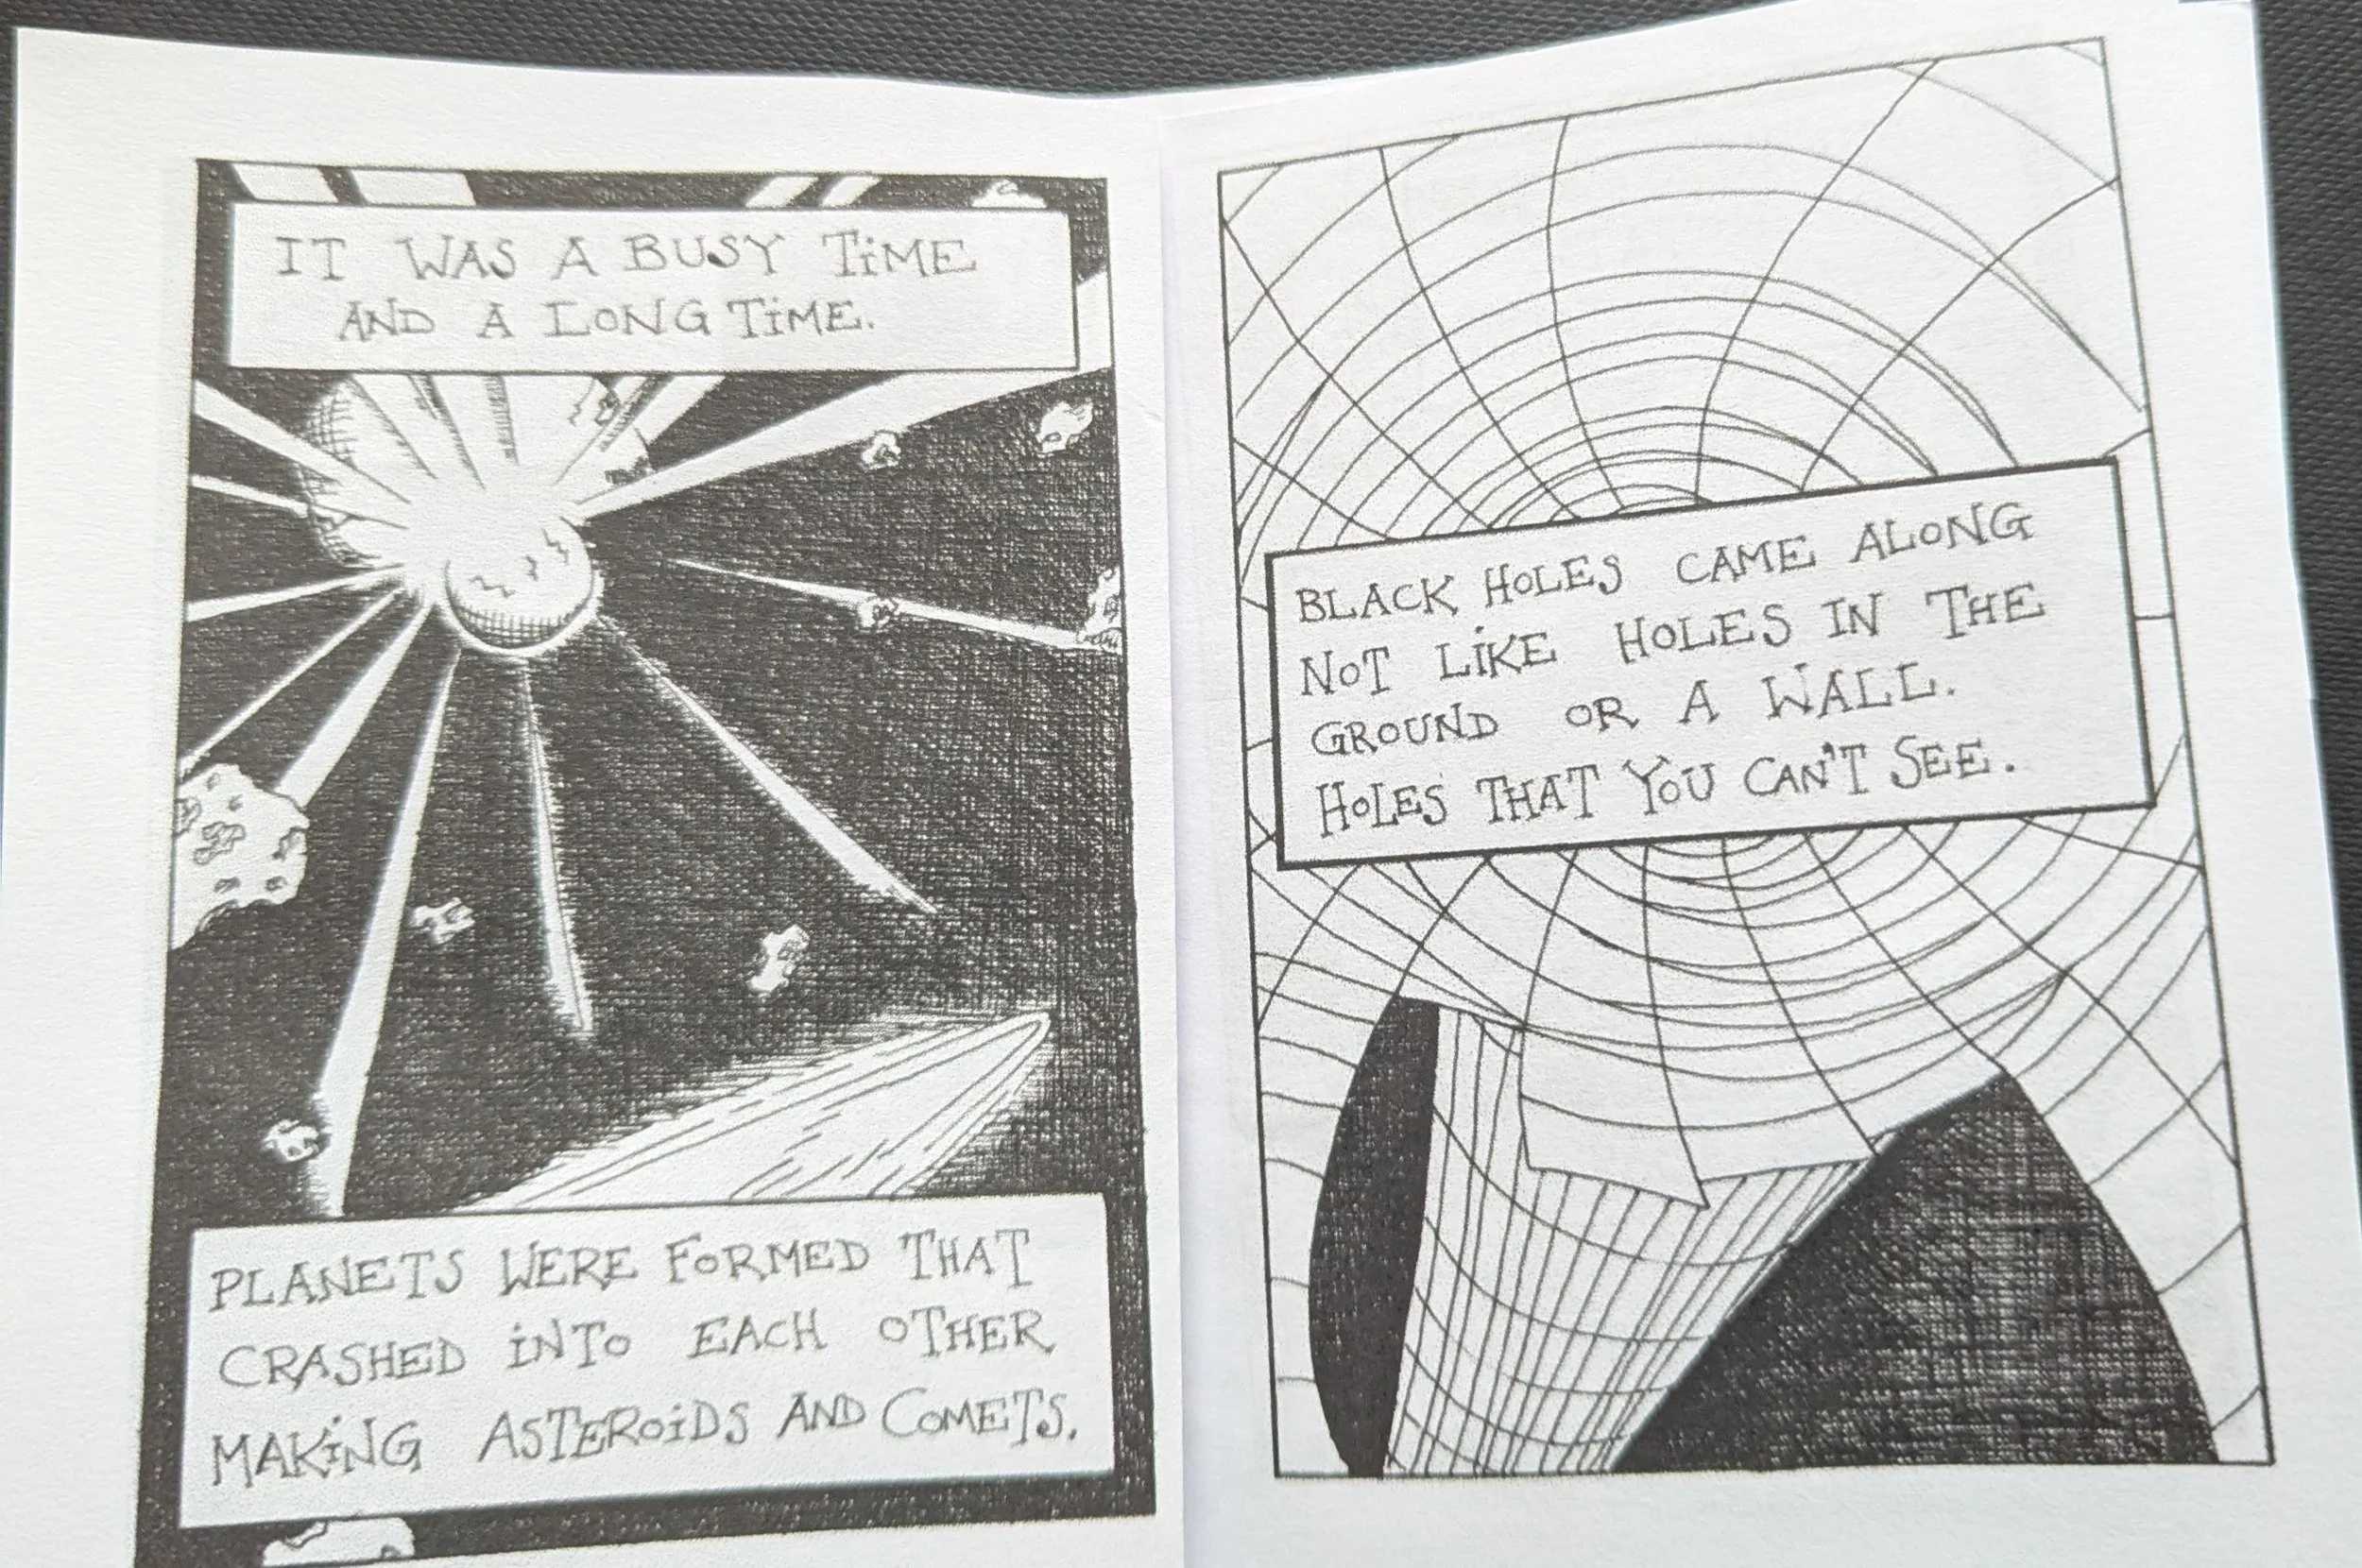 IT WAS A BUSY TiME
AND A LONG TiME.
PLANETS WERE FORMED THAT
CRASHED iNTO EACH OTHER
MAKiNG ASTEROiDS AND COMETS.
BLACK HOLES CAME ALONG
NOT LiKE HOLES IN THE
GROUND OR A WALL.
HOLES THAT YOU CAN'T SEE.